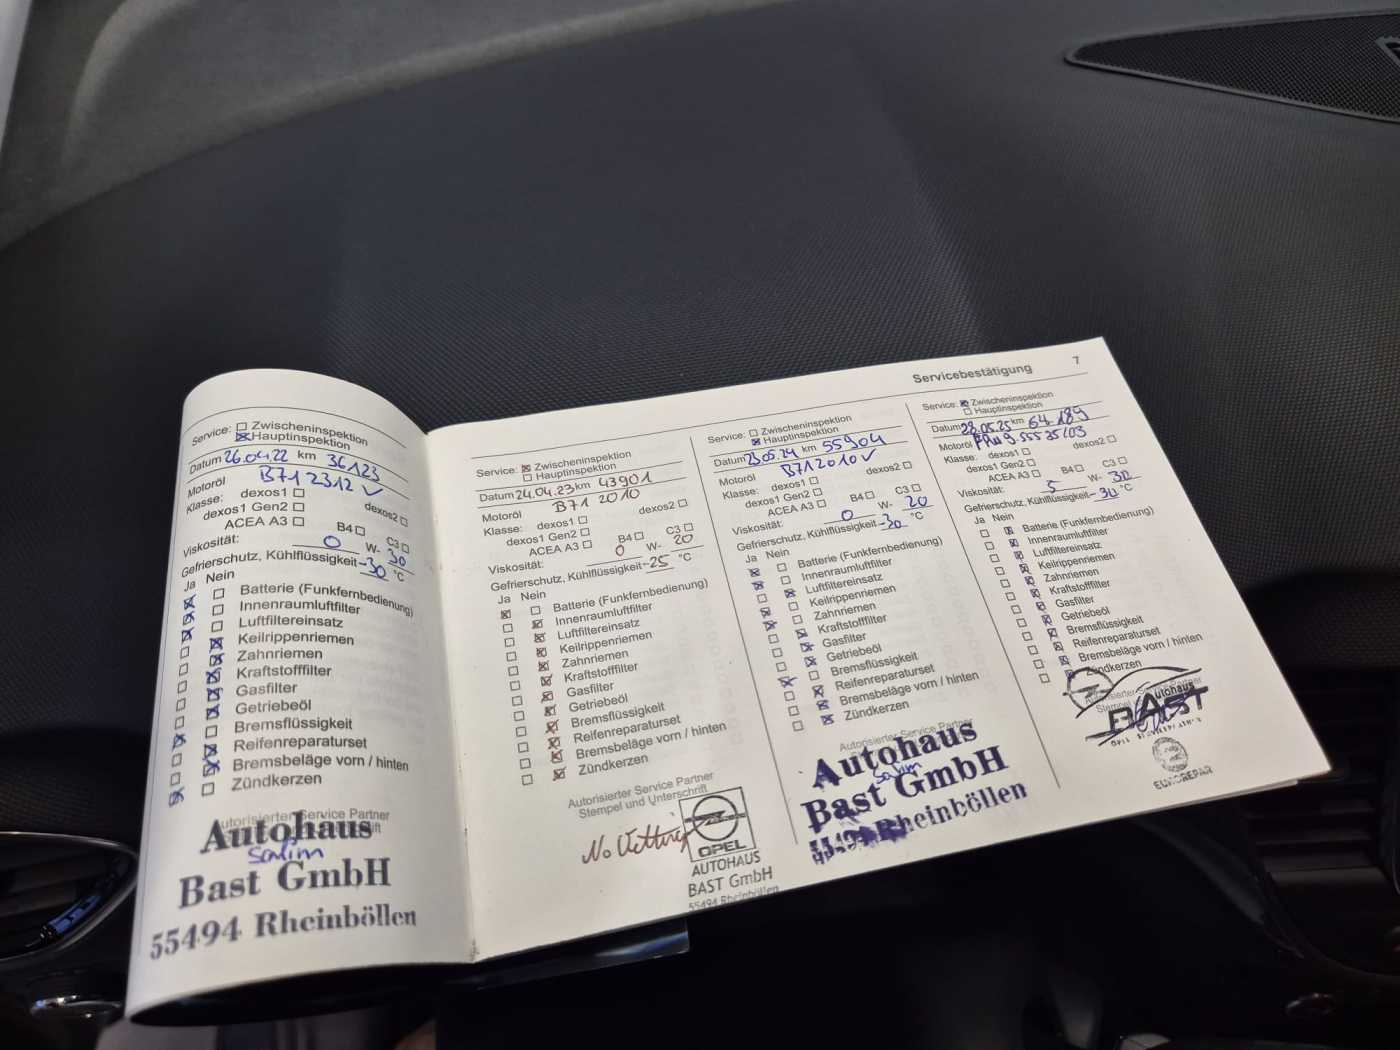 Service: Zwischeninspektion
Hauptinspektion
Datum 26.04.22 km 36123
Motoröl B71 2312
Klasse: dexos1
dexos1 Gen2 dexos2
ACEA A3 B4 C3
Viskosität: 0 W- 30
Gefrierschutz, Kühlflüssigkeit -30 °C
Ja Nein
Batterie (Funkfernbedienung)
Innenraumluftfilter
Luftfiltereinsatz
Keilrippenriemen
Zahnriemen
Kraftstofffilter
Gasfilter
Getriebeöl
Bremsflüssigkeit
Reifenreparaturset
Bremsbeläge vorn / hinten
Zündkerzen
Autorisierter Service Partner
Autohaus
Salim
Bast GmbH
55494 Rheinböllen
Service: Zwischeninspektion
Hauptinspektion
Datum 24.04.23 km 43901
Motoröl B71 2010
Klasse: dexos1 dexos2
dexos1 Gen2
ACEA A3 B4 C3
Viskosität: 0 W- 20
Gefrierschutz, Kühlflüssigkeit -25 °C
Ja Nein
Batterie (Funkfernbedienung)
Innenraumluftfilter
Luftfiltereinsatz
Keilrippenriemen
Zahnriemen
Kraftstofffilter
Gasfilter
Getriebeöl
Bremsflüssigkeit
Reifenreparaturset
Bremsbeläge vorn / hinten
Zündkerzen
Autorisierter Service Partner
Stempel und Unterschrift
OPEL
AUTOHAUS
BAST GmbH
55494 Rheinböllen
Service: Zwischeninspektion
Hauptinspektion
Datum 23.05.24 km 55904
Motoröl B71 2010
Klasse: dexos1 dexos2
dexos1 Gen2
ACEA A3 B4 C3
Viskosität: 0 W- 20
Gefrierschutz, Kühlflüssigkeit -30 °C
Ja Nein
Batterie (Funkfernbedienung)
Innenraumluftfilter
Luftfiltereinsatz
Keilrippenriemen
Zahnriemen
Kraftstofffilter
Gasfilter
Getriebeöl
Bremsflüssigkeit
Reifenreparaturset
Bremsbeläge vorn / hinten
Zündkerzen
Autorisierter Service Partner
Autohaus
Salim
Bast GmbH
55494 Rheinböllen
Servicebestätigung 7
Service: Zwischeninspektion
Hauptinspektion
Datum 28.05.25 km 64.189
Motoröl
Klasse: dexos1 dexos2
dexos1 Gen2
ACEA A3 B4 C3
Viskosität: 5 W- 30
Gefrierschutz, Kühlflüssigkeit -30 °C
Ja Nein
Batterie (Funkfernbedienung)
Innenraumluftfilter
Luftfiltereinsatz
Keilrippenriemen
Zahnriemen
Kraftstofffilter
Gasfilter
Getriebeöl
Bremsflüssigkeit
Reifenreparaturset
Bremsbeläge vorn / hinten
Zündkerzen
Autorisierter Service Partner
Autohaus
BAST
EUROREPAR